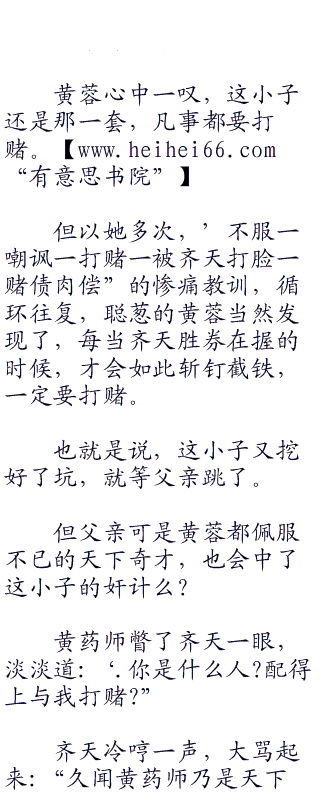 黄蓉心中一叹，这小子
还是那一套，凡事都要打
赌。【www.heihei66.com
“有意思书院”】
但以她多次，’不服一
嘲讽一打赌一被齐天打脸一
赌债肉偿”的惨痛教训，循
环往复，聪葱的黄蓉当然发
现了，每当齐天胜券在握的
时候，才会如此斩钉截铁，
一定要打赌。
也就是说，这小子又挖
好了坑，就等父亲跳了。
但父亲可是黄蓉都佩服
不已的天下奇才，也会中了
这小子的奸计么？
黄药师瞥了齐天一眼，
淡淡道：‘.你是什么人?配得
上与我打赌?”
齐天冷哼一声，大骂起
来：“久闻黄药师乃是天下